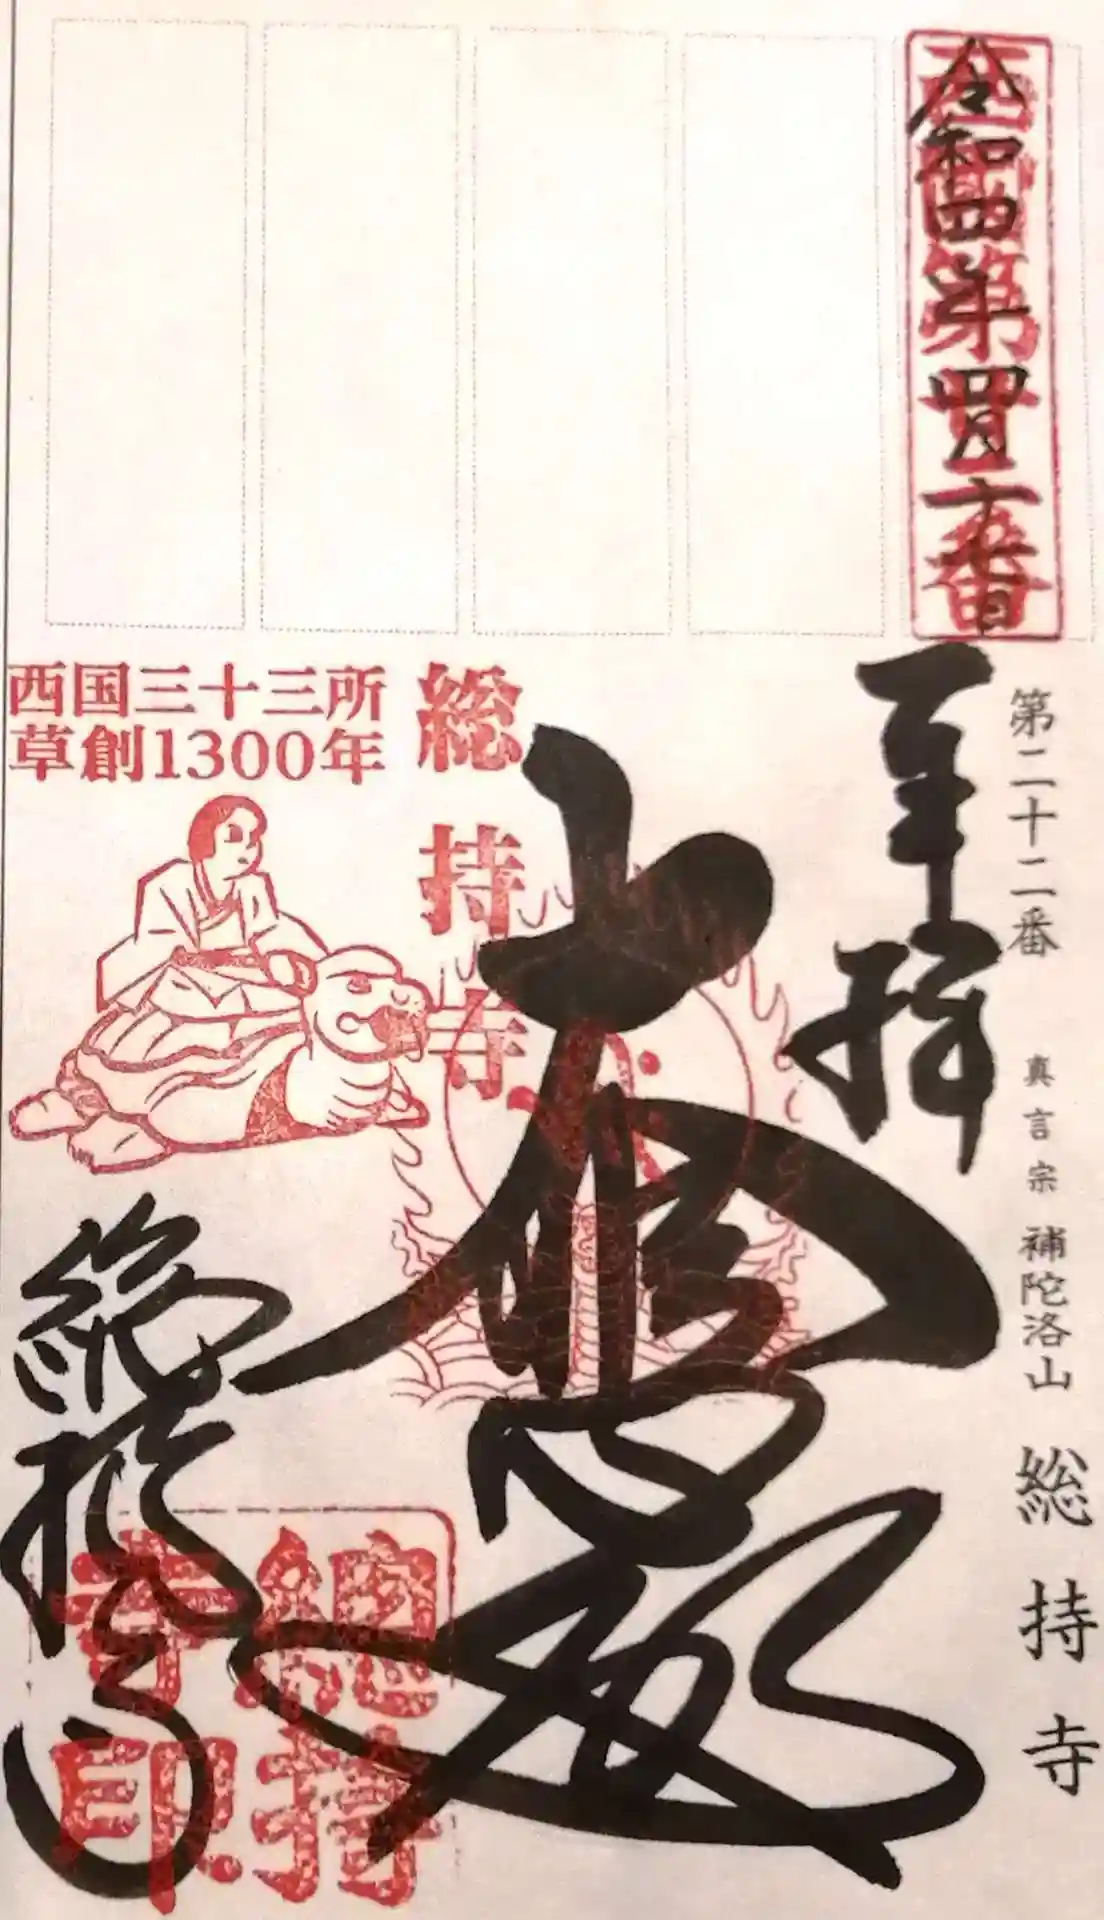 西国第廿二番
令和四年四月十六日
第二十二番 真言宗 補陀洛山 総持寺
奉拝
大悲殿
総持寺
西国三十三所
草創1300年
総持寺
総持寺印